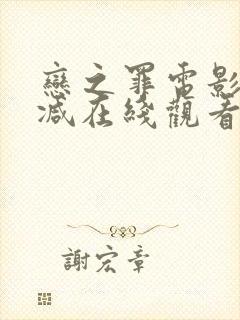 戀之罪電影
減在綫觀看
謝宏章